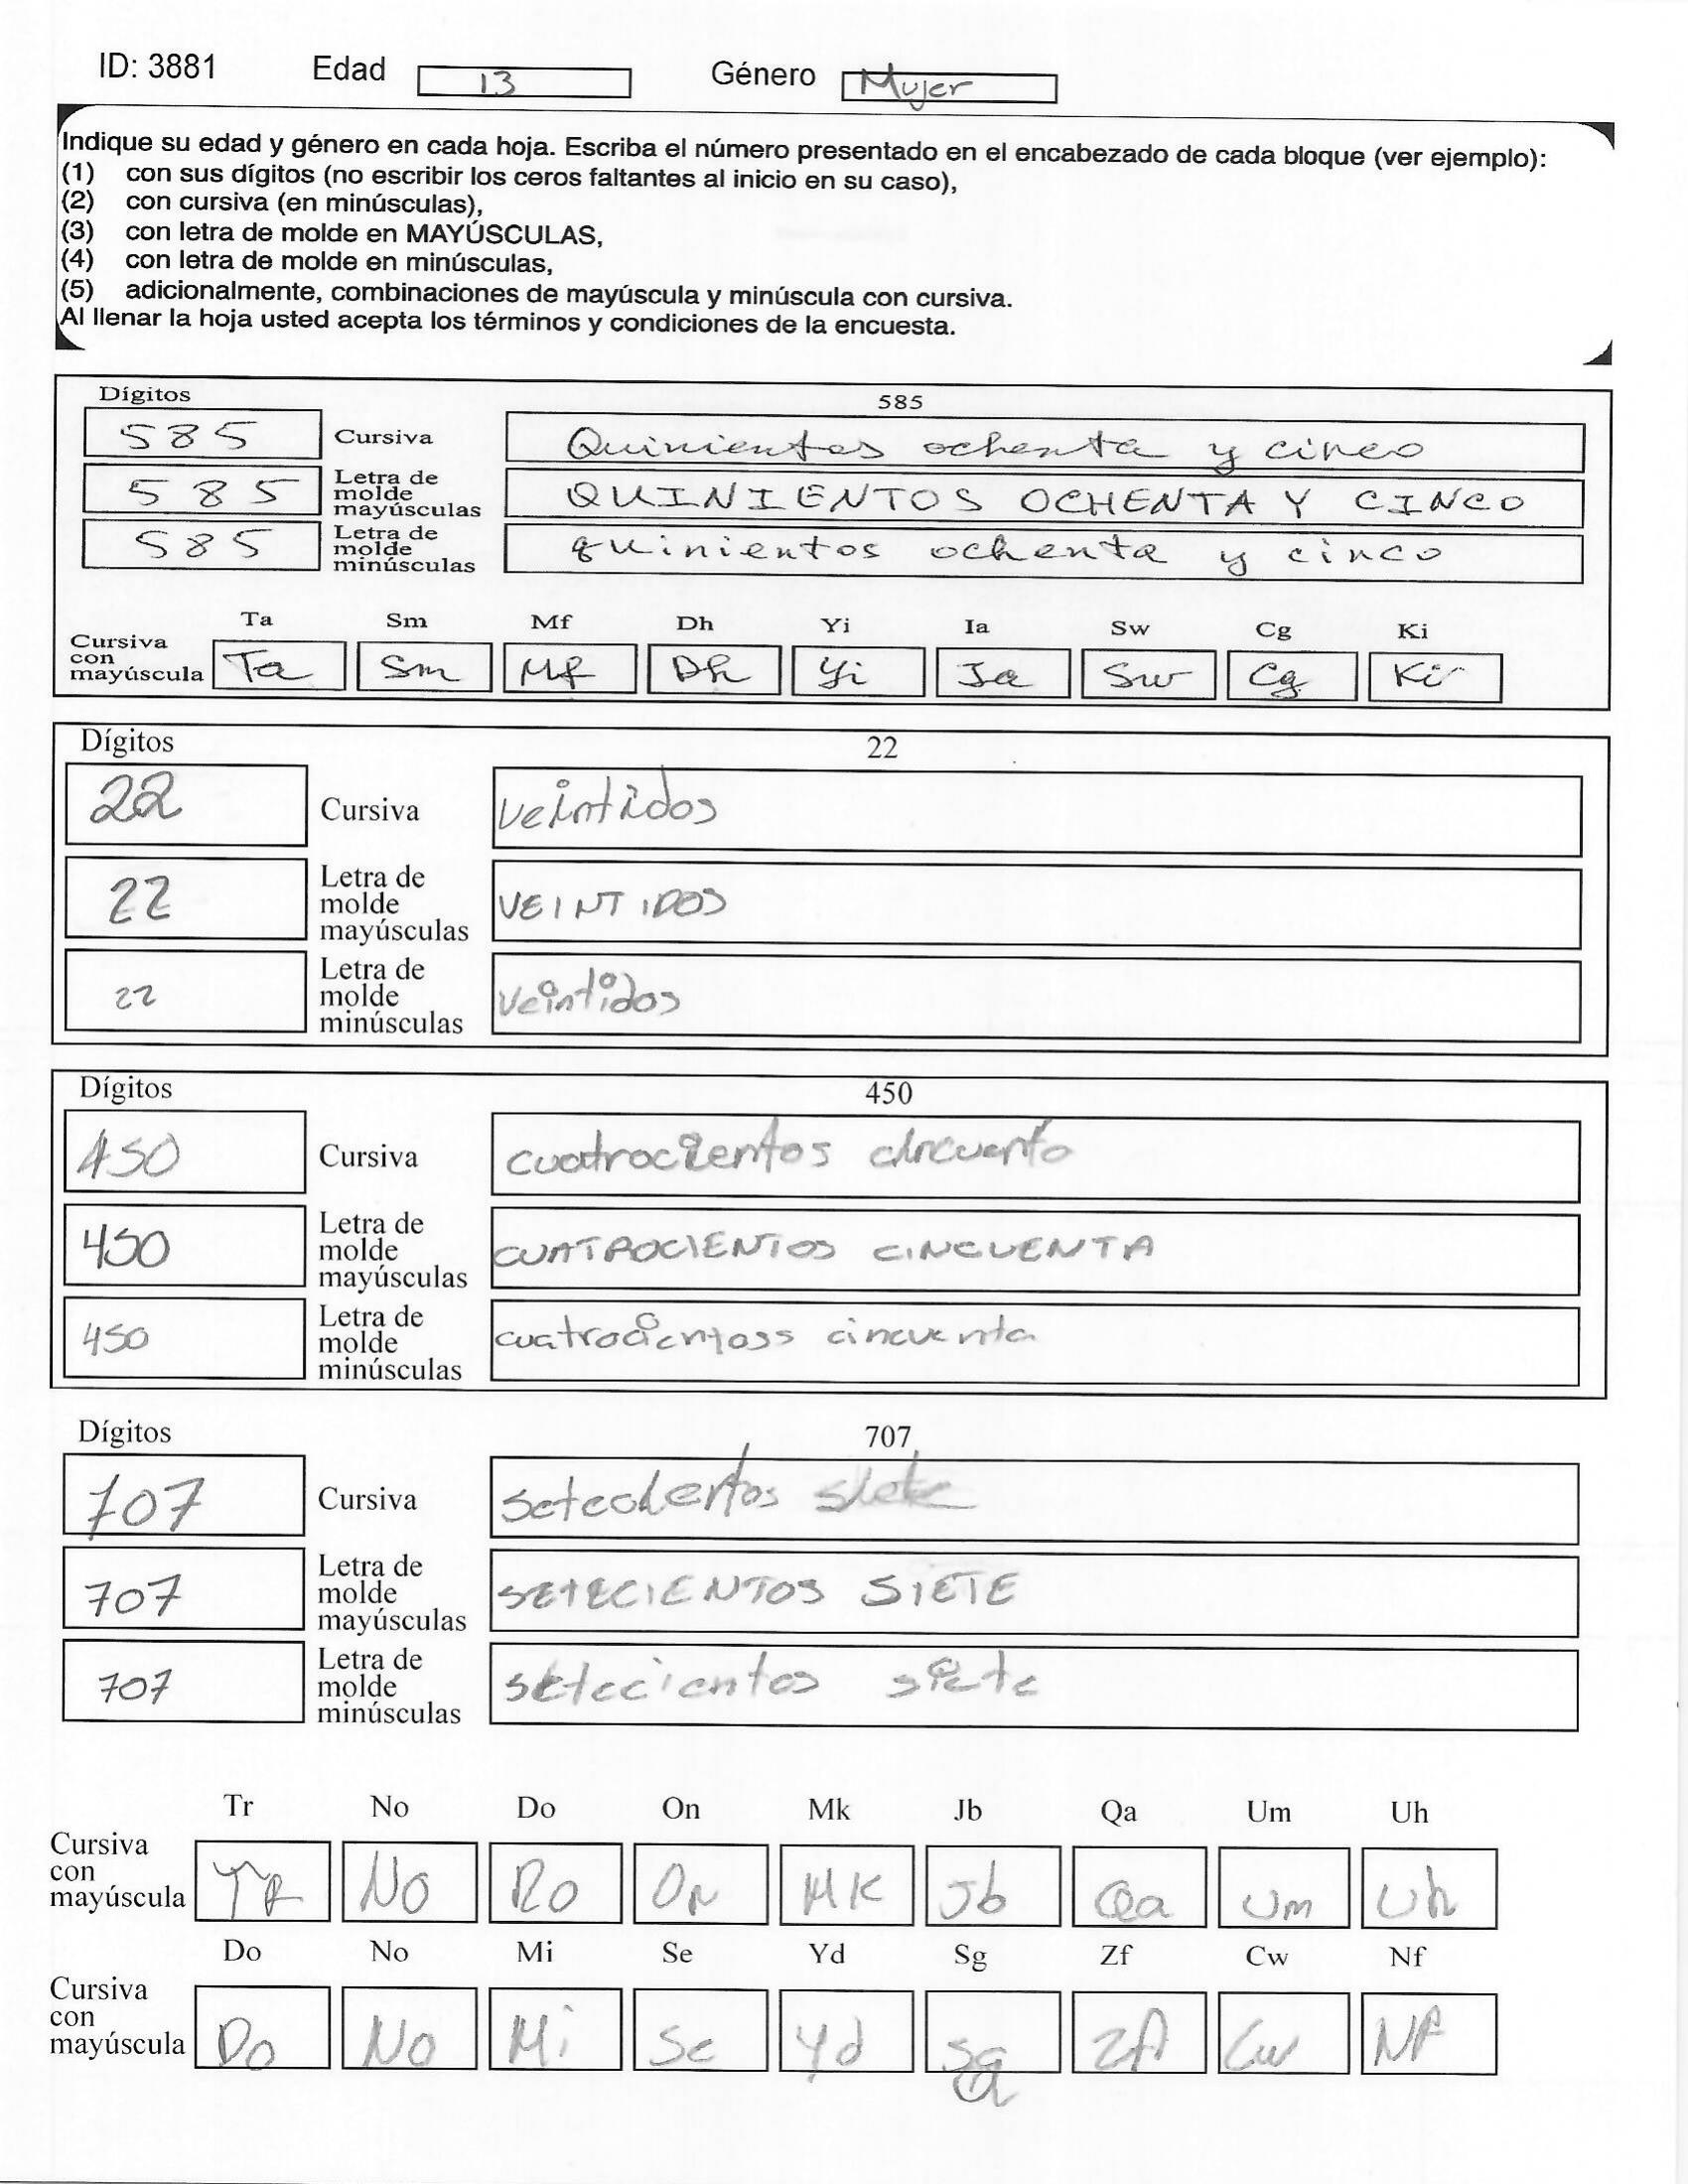 ID: 3881 Edad 13 Género Mujer
Indique su edad y género en cada hoja. Escriba el número presentado en el encabezado de cada bloque (ver ejemplo):
(1) con sus dígitos (no escribir los ceros faltantes al inicio en su caso),
(2) con cursiva (en minúsculas),
(3) con letra de molde en MAYÚSCULAS,
(4) con letra de molde en minúsculas,
(5) adicionalmente, combinaciones de mayúscula y minúscula con cursiva.
Al llenar la hoja usted acepta los términos y condiciones de la encuesta.
Dígitos 585
585 Cursiva Quinientos ochenta y cinco
585 Letra de molde mayúsculas QUINIENTOS OCHENTA Y CINCO
585 Letra de molde minúsculas quinientos ochenta y cinco
Ta Sm Mf Dh Yi Ia Sw Cg Ki
Cursiva con mayúscula Ta Sm Mf Dh Yi Ia Sw Cg Ki
Dígitos 22
22 Cursiva veintidos
22 Letra de molde mayúsculas VEINTIDOS
22 Letra de molde minúsculas veintidos
Dígitos 450
450 Cursiva cuatrocientos cincuenta
450 Letra de molde mayúsculas CUATROCIENTOS CINCUENTA
450 Letra de molde minúsculas cuatrocientoss cincuenta
Dígitos 707
707 Cursiva setecientos siete
707 Letra de molde mayúsculas SETECIENTOS SIETE
707 Letra de molde minúsculas setecientos siete
Tr No Do On Mk Jb Qa Um Uh
Cursiva con mayúscula TR NO DO ON MK Jb Qa Um Uh
Do No Mi Se Yd Sg Zf Cw Nf
Cursiva con mayúscula Do No Mi Se Yd Sg Zf Cw Nf